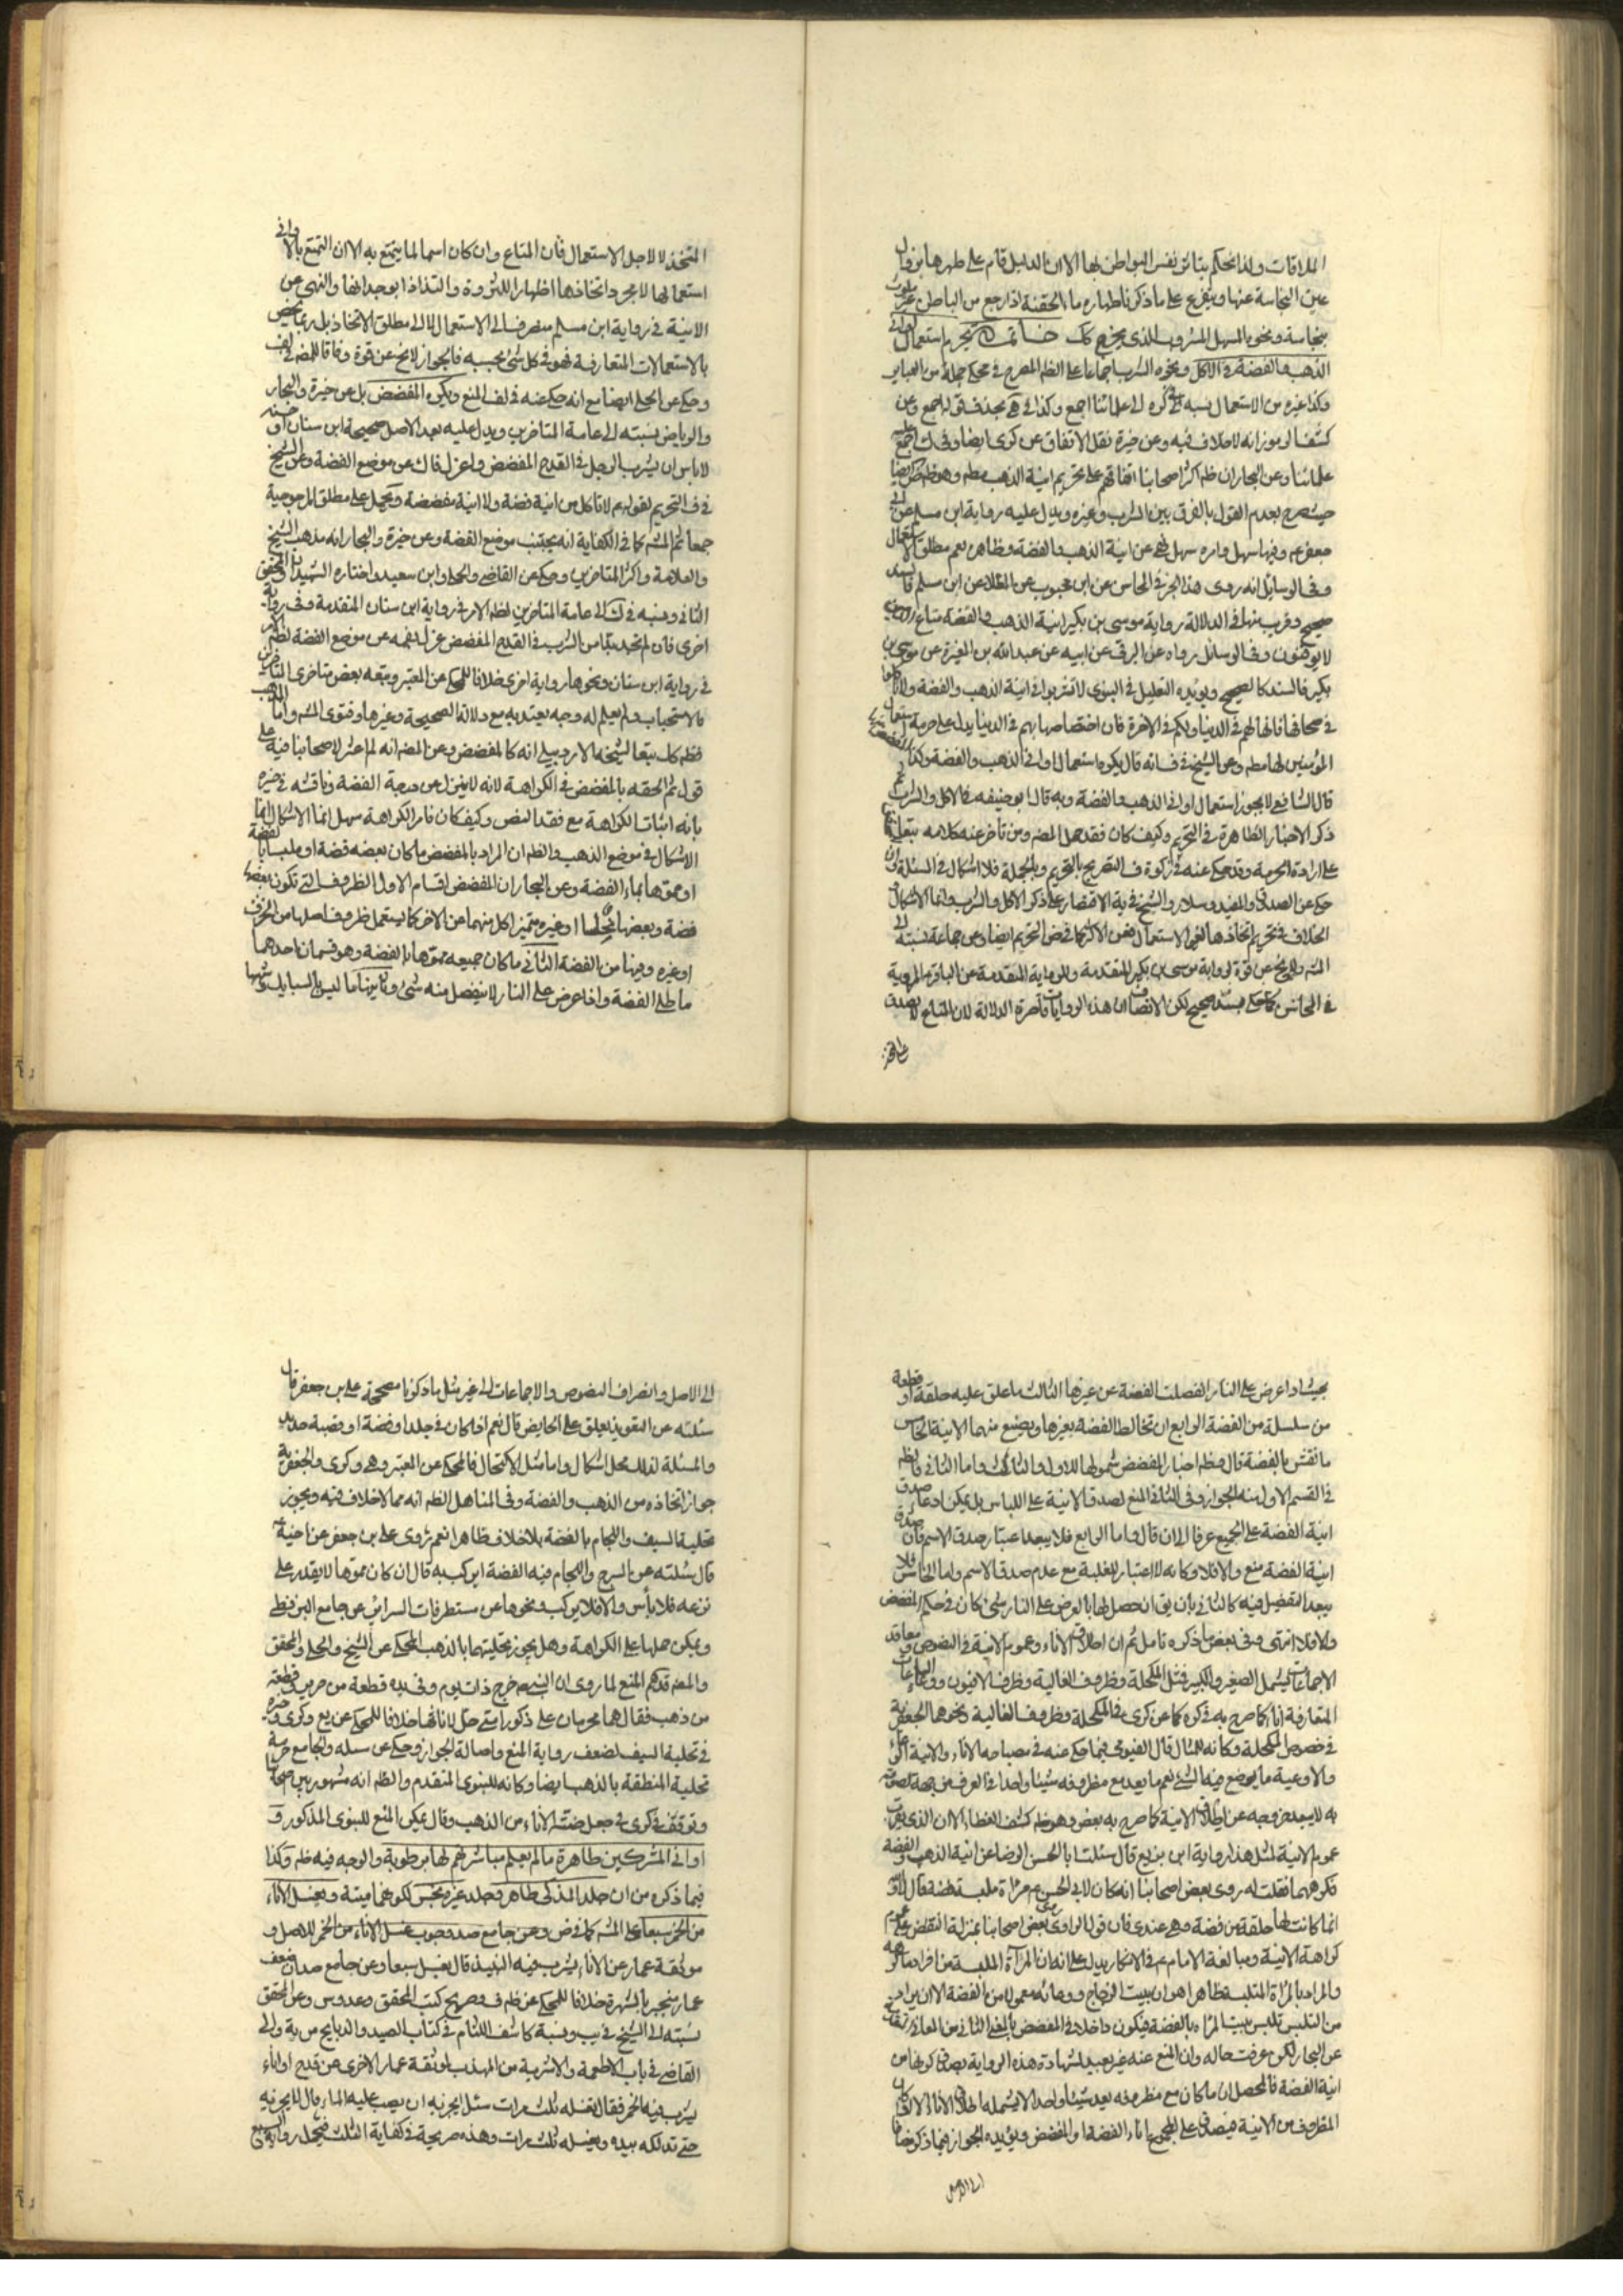 الملاقات ولذا نحكم بتأثر نفس البواطن لها الا ان الدليل قام على طهرها بزوال
عين النجاسة عنها ويتفرع على ما ذكرنا طهارة ماء الحقنة اذا رجع من الباطن غير ملوث
بنجاسة ونحوه المسهل المشروب الذي يخرج كك خاتمة يحرم استعمال اواني
الذهب والفضة في الاكل ونحوه الشرب اجماعا على الظم المصرح في محكي جملة من العباير
وكذا غيره من الاستعمال نسبه في كره الى علمائنا اجمع وكذا في هى بحذف قوله اجمع وعن
كشف الرموز انه لا خلاف فيه وعن خيرة نقل الاتفاق عن كرى ايضا وفي ك اجمع
علمائنا وعن البحار ان ظم اكثر اصحابنا اتفاقهم على تحريم انية الذهب مطم وهو ظم ايضا
حيث صرح بعدم القول بالفرق بين الشرب وغيره ويدل عليه رواية ابن مسلم عن ابي
جعفر ع وفيها سهل وامره سهل نهى عن انية الذهب والفضة وظاهره يعم مطلق الاستعمال
وفي الوسايل انه روى هذا الخبر في المحاسن عن ابن محبوب عن العلا عن ابن مسلم فالسند
صحيح وقريب منها في الدلالة رواية موسى بن بكير انية الذهب والفضة متاع الذين
لا يوقنون وفي الوسائل رواه عن البرقي عن ابيه عن عبد الله بن المغيرة عن موسى بن
بكير فالسند كالصحيح ويؤيده التعليل في النبوي لا تشربوا في انية الذهب والفضة ولا تاكلوا
في صحافها فانها لهم في الدنيا ولكم في الاخرة فان اختصاصها بهم في الدنيا يدل على حرمة استعمال
المؤمنين لها مطم وعن الشيخ في ف انه قال يكره استعمال اواني الذهب والفضة وكذا المفضضة
قال الشافعي لا يجوز استعمال اواني الذهب والفضة وبه قال ابو حنيفة في الاكل والشرب ثم
ذكر الاخبار الظاهرة في التحريم وكيف كان فقد حمل المص ومن تاخر عنه كلامه
على ارادة الحرمة وقد حكى عنه في زكوة ف التصريح بالتحريم وبالجملة فلا اشكال في المسئلة وان
حكى عن الصدوق والمفيد وسلار والشيخ في ية الاقتصار على ذكر الاكل والشرب وانما الاشكال
الخلاف في تحريم اتخاذها لغير الاستعمال فعن الاكثر كما في ض التحريم ايضا وعن جماعة نسبته الى
المش ولا يخ عن قوة لرواية موسى بن بكير المتقدمة وللرواية المتقدمة عن الباقر ع المروية
في المحاسن كما حكى بسند صحيح لكن الانصاف ان هذه الروايات قاصرة الدلالة لان المتاع لا يصدق
على
المتخذ لا لاجل الاستعمال فان المتاع وان كان اسما لما يتمتع به الا ان التمتع بالاواني
استعمالها لا مجرد اتخاذها اظهارا للثروة والتذاذا بوجدانها والنهي عن
الانية في رواية ابن مسلم منصرف الى الاستعمال لا الى مطلق الاتخاذ بل ربما يختص
بالاستعمالات المتعارفة فهو في كل شئ بحسبه فالجواز لا يخ عن قوة وفاقا للمص في لف
وحكى عن الحلي ايضا مع انه حكى عنه في لف المنع ويكره المفضض بل عن خيرة والبحار
والرياض نسبته الى عامة المتاخرين ويدل عليه بعد الاصل صحيحة ابن سنان او حسنته
لا باس ان يشرب الرجل في القدح المفضض واعزل فاك عن موضع الفضة وعن الشيخ
في ف التحريم لقوله ع لا تاكل من انية فضة ولا انية مفضضة ويحمل على مطلق المرجوحية
جمعا ثم المش كما في الكفاية انه يجتنب موضع الفضة وعن خيرة والبحار انه مذهب الشيخ
والعلامة واكثر المتاخرين وحكى عن القاضي والحلي وابن سعيد واختاره الشهيدان والمحقق
الثاني ونسبه في ك الى عامة المتاخرين لظم الامر في رواية ابن سنان المتقدمة وفي رواية
اخرى فان لم تجد بدا من الشرب في القدح المفضض عزل بفمه عن موضع الفضة لظم الامر
في رواية ابن سنان ونحوها رواية اخرى خلافا للمحكي عن المعتبر وتبعه بعض متاخرى المتاخرين
فالاستحباب ولم يعلم له وجه يعتد به مع دلالة الصحيحة وغيرها وفتوى المش واما المذهب
فظم كك تبعا لشيخه الاردبيلي انه كالمفضض وعن المص انه لم اعثر لاصحابنا فيه على
قول ثم الحقه بالمفضض في الكراهة لانه لا ينزل عن درجة الفضة وناقشه في خيرة
بانه اثبات الكراهة مع فقد النص وكيف كان فامر الكراهة سهل انما الاشكال انما
الاشكال في موضع الذهب والظم ان المراد بالمفضض ما كان بعضه فضة او ملبسا بالفضة
او مموها بماء الفضة وعن البحار ان المفضض اقسام الاول الظروف التي تكون بعضها
فضة وبعضها نحاسا او غيره متميزا كل منهما عن الاخر كما يستعمل ظروف اصلها من الخزف
او غيره وفمها من الفضة الثاني ما كان جميعه مموها بالفضة وهو قسمان احدهما
ما طلي الفضة واذا عرض على النار لا ينفصل منه شئ وثانيهما ما لبس بالسبايك وشبهها
بحيث اذا عرض على النار انفصلت الفضة عن غيرها الثالث ما علق عليه حلقة او قطعة
من سلسلة من الفضة الرابع ان تخالط الفضة بغيرها ويصنع منهما الانية الخامس
ما نقش بالفضة قال وظم اخبار المفضض شمولها للاول والثالث واما الثاني فالظم
في القسم الاول منه الجواز وفي الثاني المنع لصدق الانية على اللباس بل يمكن ادعاء صدق
انية الفضة على الجميع عرفا الى ان قال واما الرابع فلا يبعد اعتبار صدق الاسم فان صدق
انية الفضة منع والا فلا وكانه لا اعتبار للغلبة مع عدم صدق الاسم واما الخامس فلا
يبعد التفصيل فيه كالثاني بان يق ان حصل لها بالعرض على النار شئ كان في حكم المفضض
والا فلا انتهى وفي بعض ما ذكره تامل ثم ان اطلاق الاناء وعموم الانية في النصوص ومعاقد
الاجماعات يشمل الصغير والكبير فمثل المكحلة وظروف الغالية وظرف الافيون ووعاء
المتعارفة اناء كما صرح به في كره كما عن كرى في المكحلة وظروف الغالية ونحوهما الجعفرية
في خصوص المكحلة وكانه للمثال قال الفيومي فيما حكى عنه في مصباحه الاناء والانية الوعاء
والاوعية ما يوضع فيه الشئ نعم ما يعد مع مظروفه شيئا واحدا في العرف من جهة لصوقه
به لا يبعد خروجه عن اطلاق الانية كما صرح به بعض وهو ظم كشف الغطاء الا ان الذي يقرب
عموم الانية لمثل هذا رواية ابن بزيع قال سئلت ابا الحسن الرضا عن انية الذهب والفضة
فكرههما فقلت له روى بعض اصحابنا انه كان لابي الحسن ع مرآة ملبسة فضة فقال لا والله
انما كانت لها حلقة من فضة وهي عندي فان قول الراوي روى بعض اصحابنا بمنزلة النقض على عموم
كراهة الانية ومبالغة الامام ع في الانكار يدل على انه ان المرآة الملبسة من افراد ما كرهه
والمراد بالمرآة المتلبسة ظاهرا هو ان بيت الزجاج ووعائه معمولا من الفضة الا ان يراد
من التلبس تلبس بيت المرآه بالفضة فيكون داخلا في المفضض بالمعنى الثاني من المعاني
عن البحار لكن عرفت حاله وان المنع عنه غير بعيد لشهادة هذه الرواية بصدق كونها من
انية الفضة فالمحصل ان ما كان مع مظروفه يعد شيئا واحدا لا يشمله اطلاق الاناء الا ان كان
المظروف من الانية فيصدق على المجموع اناء الفضة او المفضض ويؤيده الجواز فيما ذكر مضافا
الى الاصل
الى الاصل وانصراف النصوص والاجماعات الى غير مثل ما ذكرنا مصححة علي بن جعفر قال
سئلته عن التعويذ يعلق على الحايض قال نعم اذا كان في جلد او فضة او قصبة حديد
والمسئلة لذلك محل اشكال واما مثل الاكتحال فالمحكي عن المعتبر وهى وكرى والجعفرية
جواز اتخاذه من الذهب والفضة وفي المناهل الظم انه مما لا خلاف فيه ويجوز
تحلية السيف واللجام بالفضة بلا خلاف ظاهرا نعم روى علي بن جعفر عن اخيه ع
قال سئلته عن السرج واللجام فيه الفضة ايركب به قال ان كان مموها لا يقدر على
نزعه فلا بأس والا فلا يركب ونحوها عن مستطرفات السرائر عن جامع البزنطي
ويمكن حملها على الكراهة وهل يجوز تحليتهما بالذهب المحكي عن الشيخ والحلي والمحقق
والمص قدهم المنع لما روى ان النبي ص خرج ذات يوم وفي يده قطعة من حرير وقطعة
من ذهب فقال هما محرمان على ذكور امتي حل لاناثها خلافا للمحكي عن يع وكرى وخيرة
في تحلية السيف لضعف رواية المنع واصالة الجواز وحكى عن سلة والجامع حرمة
تحلية المنطقة بالذهب ايضا وكانه للنبوي المتقدم والظم انه مشهور بين اصحابنا
وتوقف في كرى في جعل ضبة الاناء من الذهب وقال يمكن المنع للنبوي المذكور و
اواني المشركين طاهرة ما لم يعلم مباشرتهم لها برطوبة والوجه فيه ظم وكذا
فيما ذكره من ان جلد المذكى طاهر وجلد غيره نجس لكونهما ميتة ويغسل الاناء
من الخمر سبعا على المش كما في ض وعن جامع صد وجوب غسل الاناء من الخمر للاصل و
موثقة عمار عن الاناء يشرب فيه النبيذ قال يغسل سبعا وعن جامع صد ان ضعف
عمار منجبر بالشهرة خلافا للمحكي عن ظم ف وصريح كتب المحقق وعدوس وعن المحقق
نسبته الى الشيخ في يب ونسبة كاشف اللثام في كتاب الصيد والذبايح من ية والى
القاضي في باب الاطعمة والاشربة من المهذب لموثقة عمار الاخرى عن قدح او اناء
يشرب فيه الخمر فقال تغسله ثلث مرات سئل ايجزيه ان يصب عليه الماء قال لا يجزيه
حتى تدلكه بيده ويغسله ثلث مرات وهذه صريحة في كفاية الثلث فتحمل رواية السبع